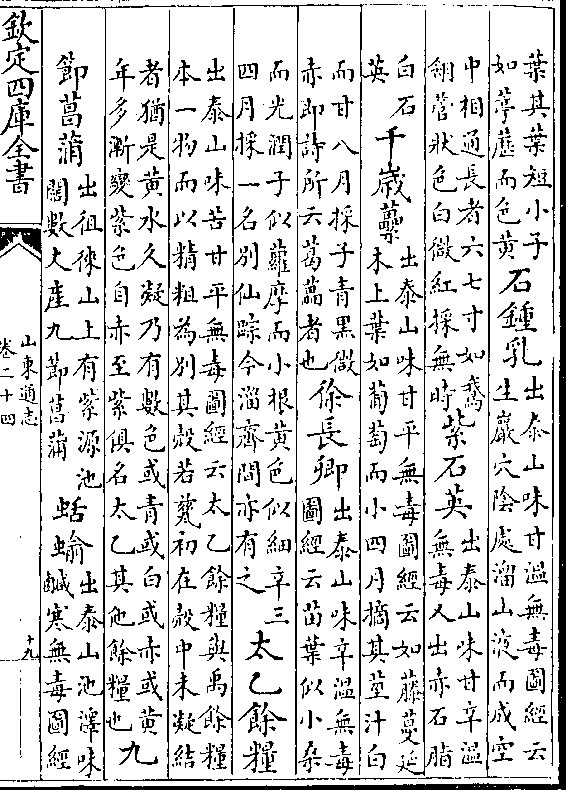 葉其葉短小子
如葶藶而色黄
石鍾乳
出泰山味甘溫無毒圖經云
生巖穴陰處溜山液而成空
中相通長者六七寸如鵞
翎管狀色白微紅採無時
紫石英
出泰山味甘辛溫
無毒又出赤石脂
白石
英
千歳虆
出泰山味甘平無毒圖經云如藤蔓延
木上葉如葡萄而小四月摘其莖汁白
而甘八月採子青黑微
赤即詩所云葛藟者也
徐長卿
出泰山味辛溫無毒
圖經云苗葉似小桑
而光潤子似蘿摩而小根黄色似細辛三
四月採一名别仙踪今淄齊間亦有之
太乙餘糧
出泰山味苦甘平無毒圖經云太乙餘糧與禹餘糧
本一物而以精粗為别其殻若甆初在殻中未凝結
者猶是黄水久凝乃有數色或青或白或赤或黄
年多漸變紫色自赤至紫俱名太乙其他餘糧也
九
節菖蒲
出徂徠山上有紫源池
闊數丈產九節菖蒲
蛞蝓
出泰山池澤味
鹹寒無毒圖經
欽定四庫全書
山東通志
卷二十四
十九